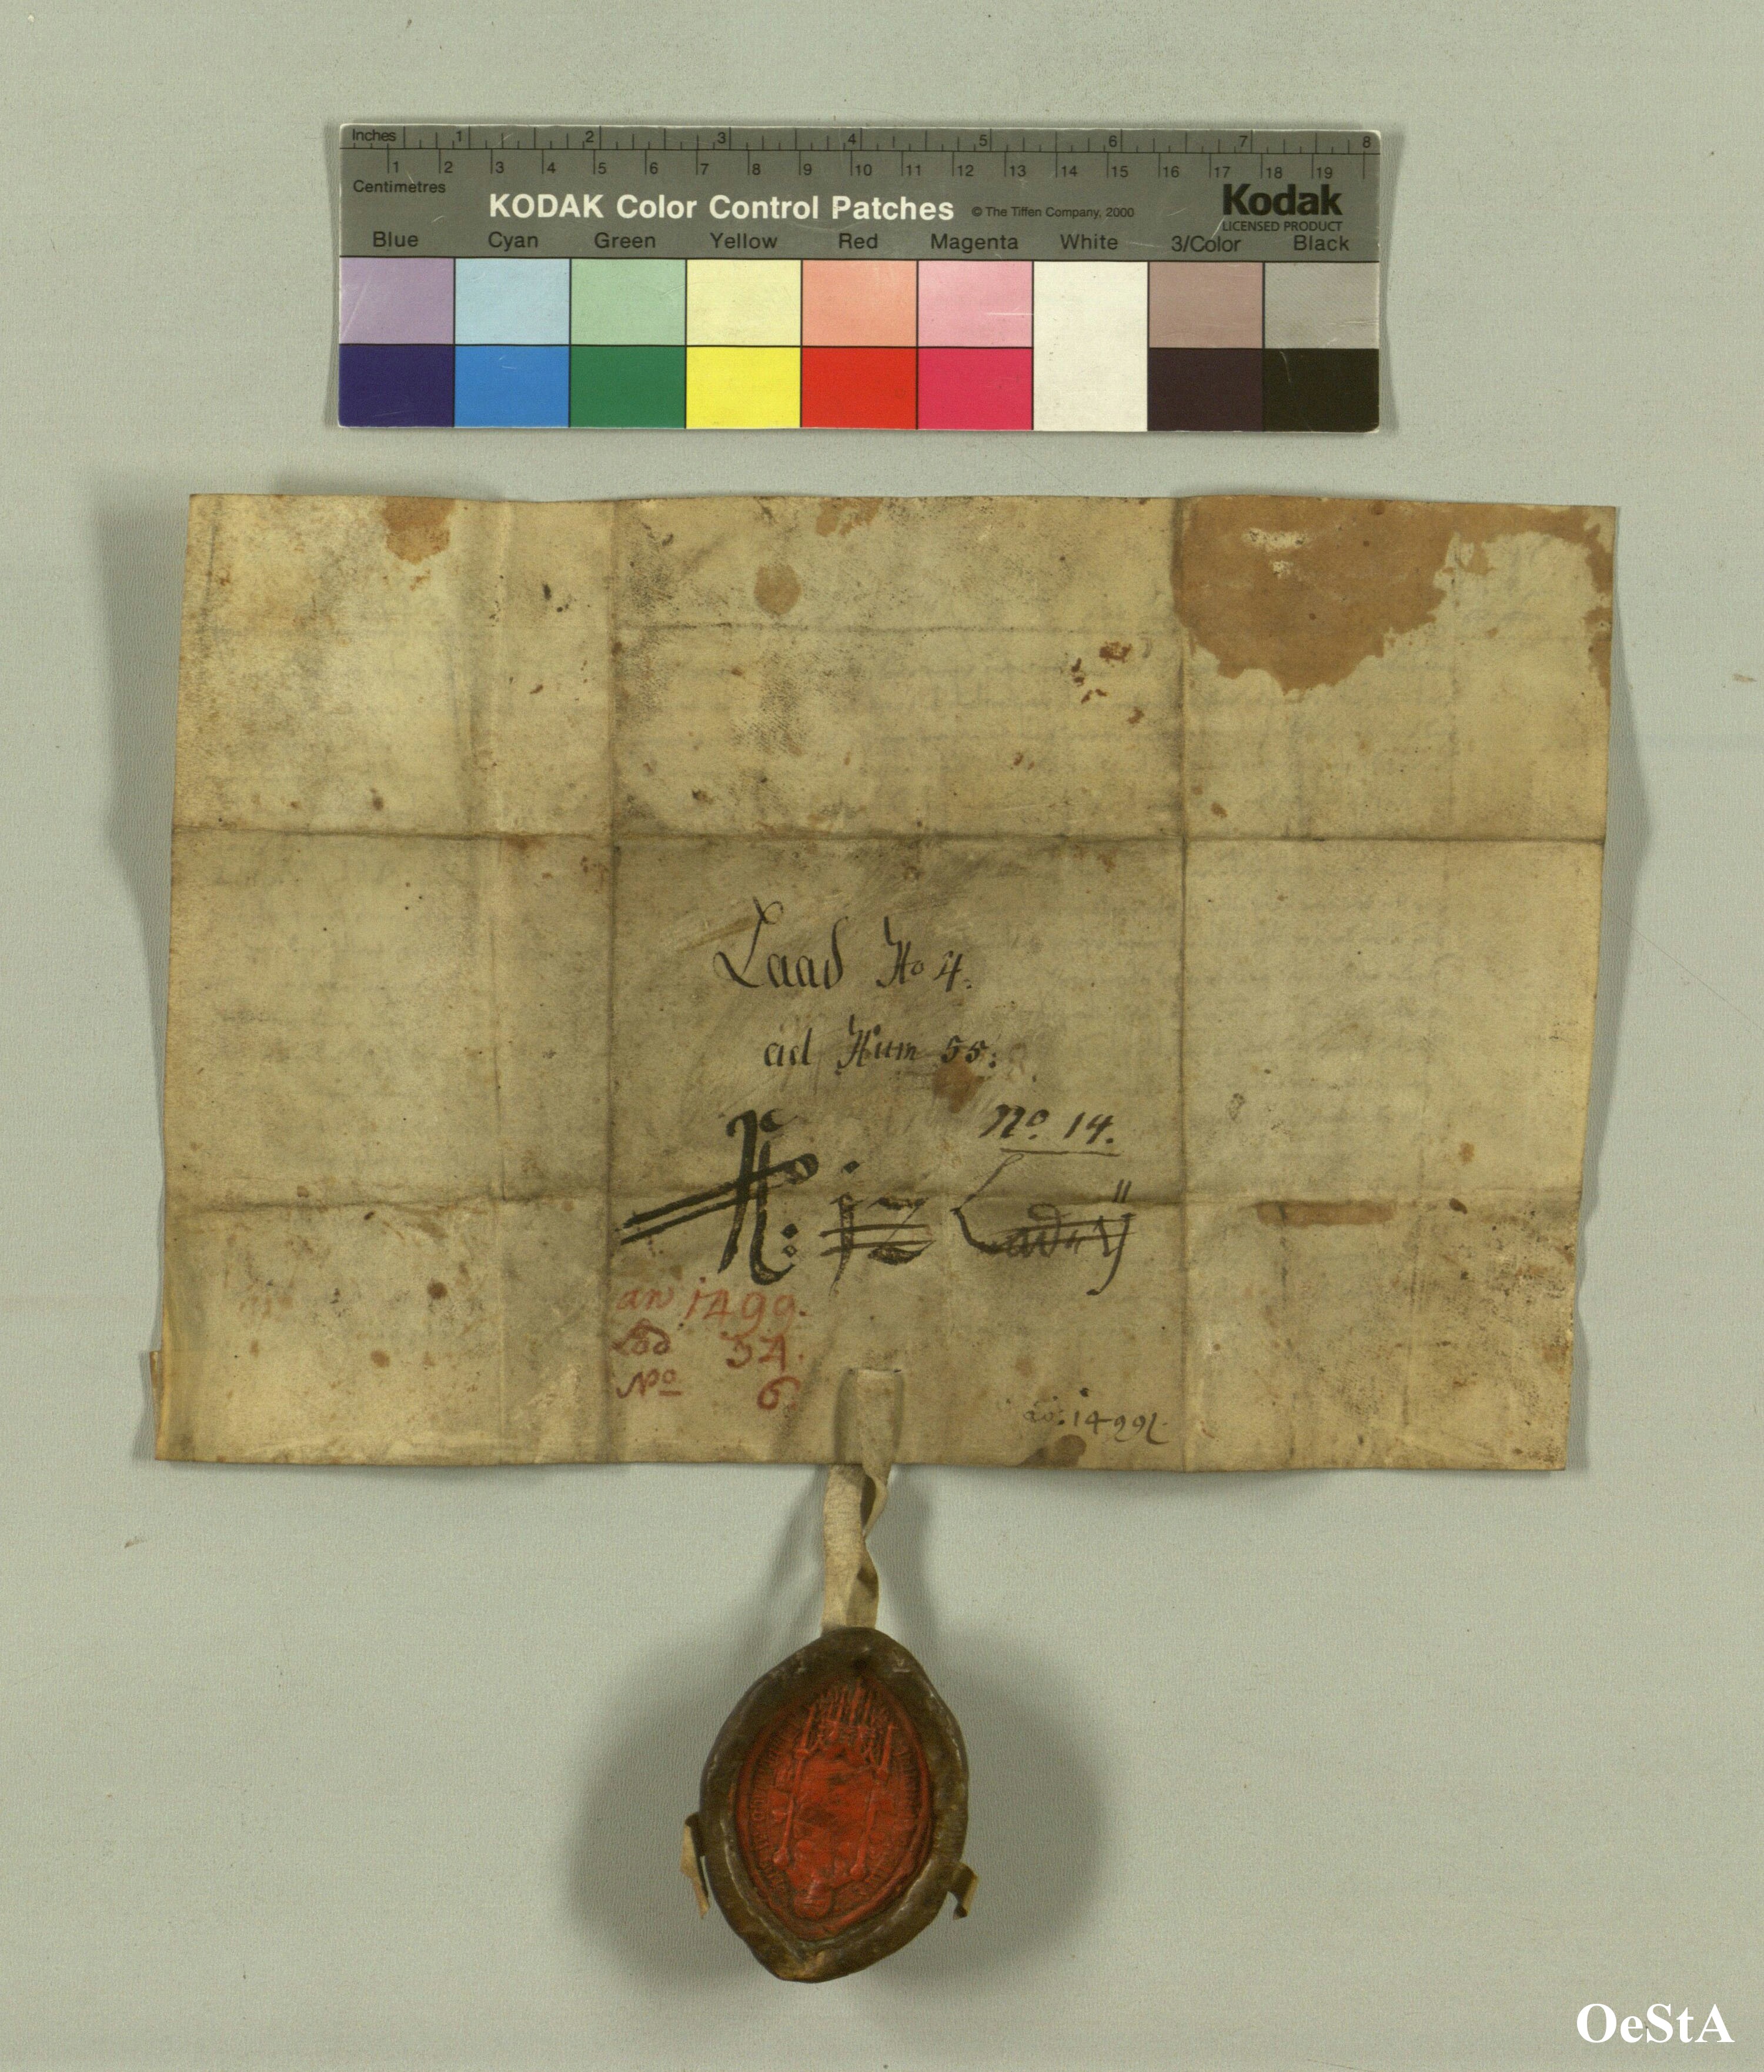 Inches 1 2 3 4 5 6 7 8
1 2 3 4 5 6 7 8 9 10 11 12 13 14 15 16 17 18 19
Centimetres
KODAK Color Control Patches © The Tiffen Company, 2000 Kodak
LICENSED PRODUCT
Blue Cyan Green Yellow Red Magenta White 3/Color Black
Laad No 4.
ad Num 55:
No. 14.
No: 12 Lad
an 1499.
Lad 34.
No 6.
ao: 1499
OeStA